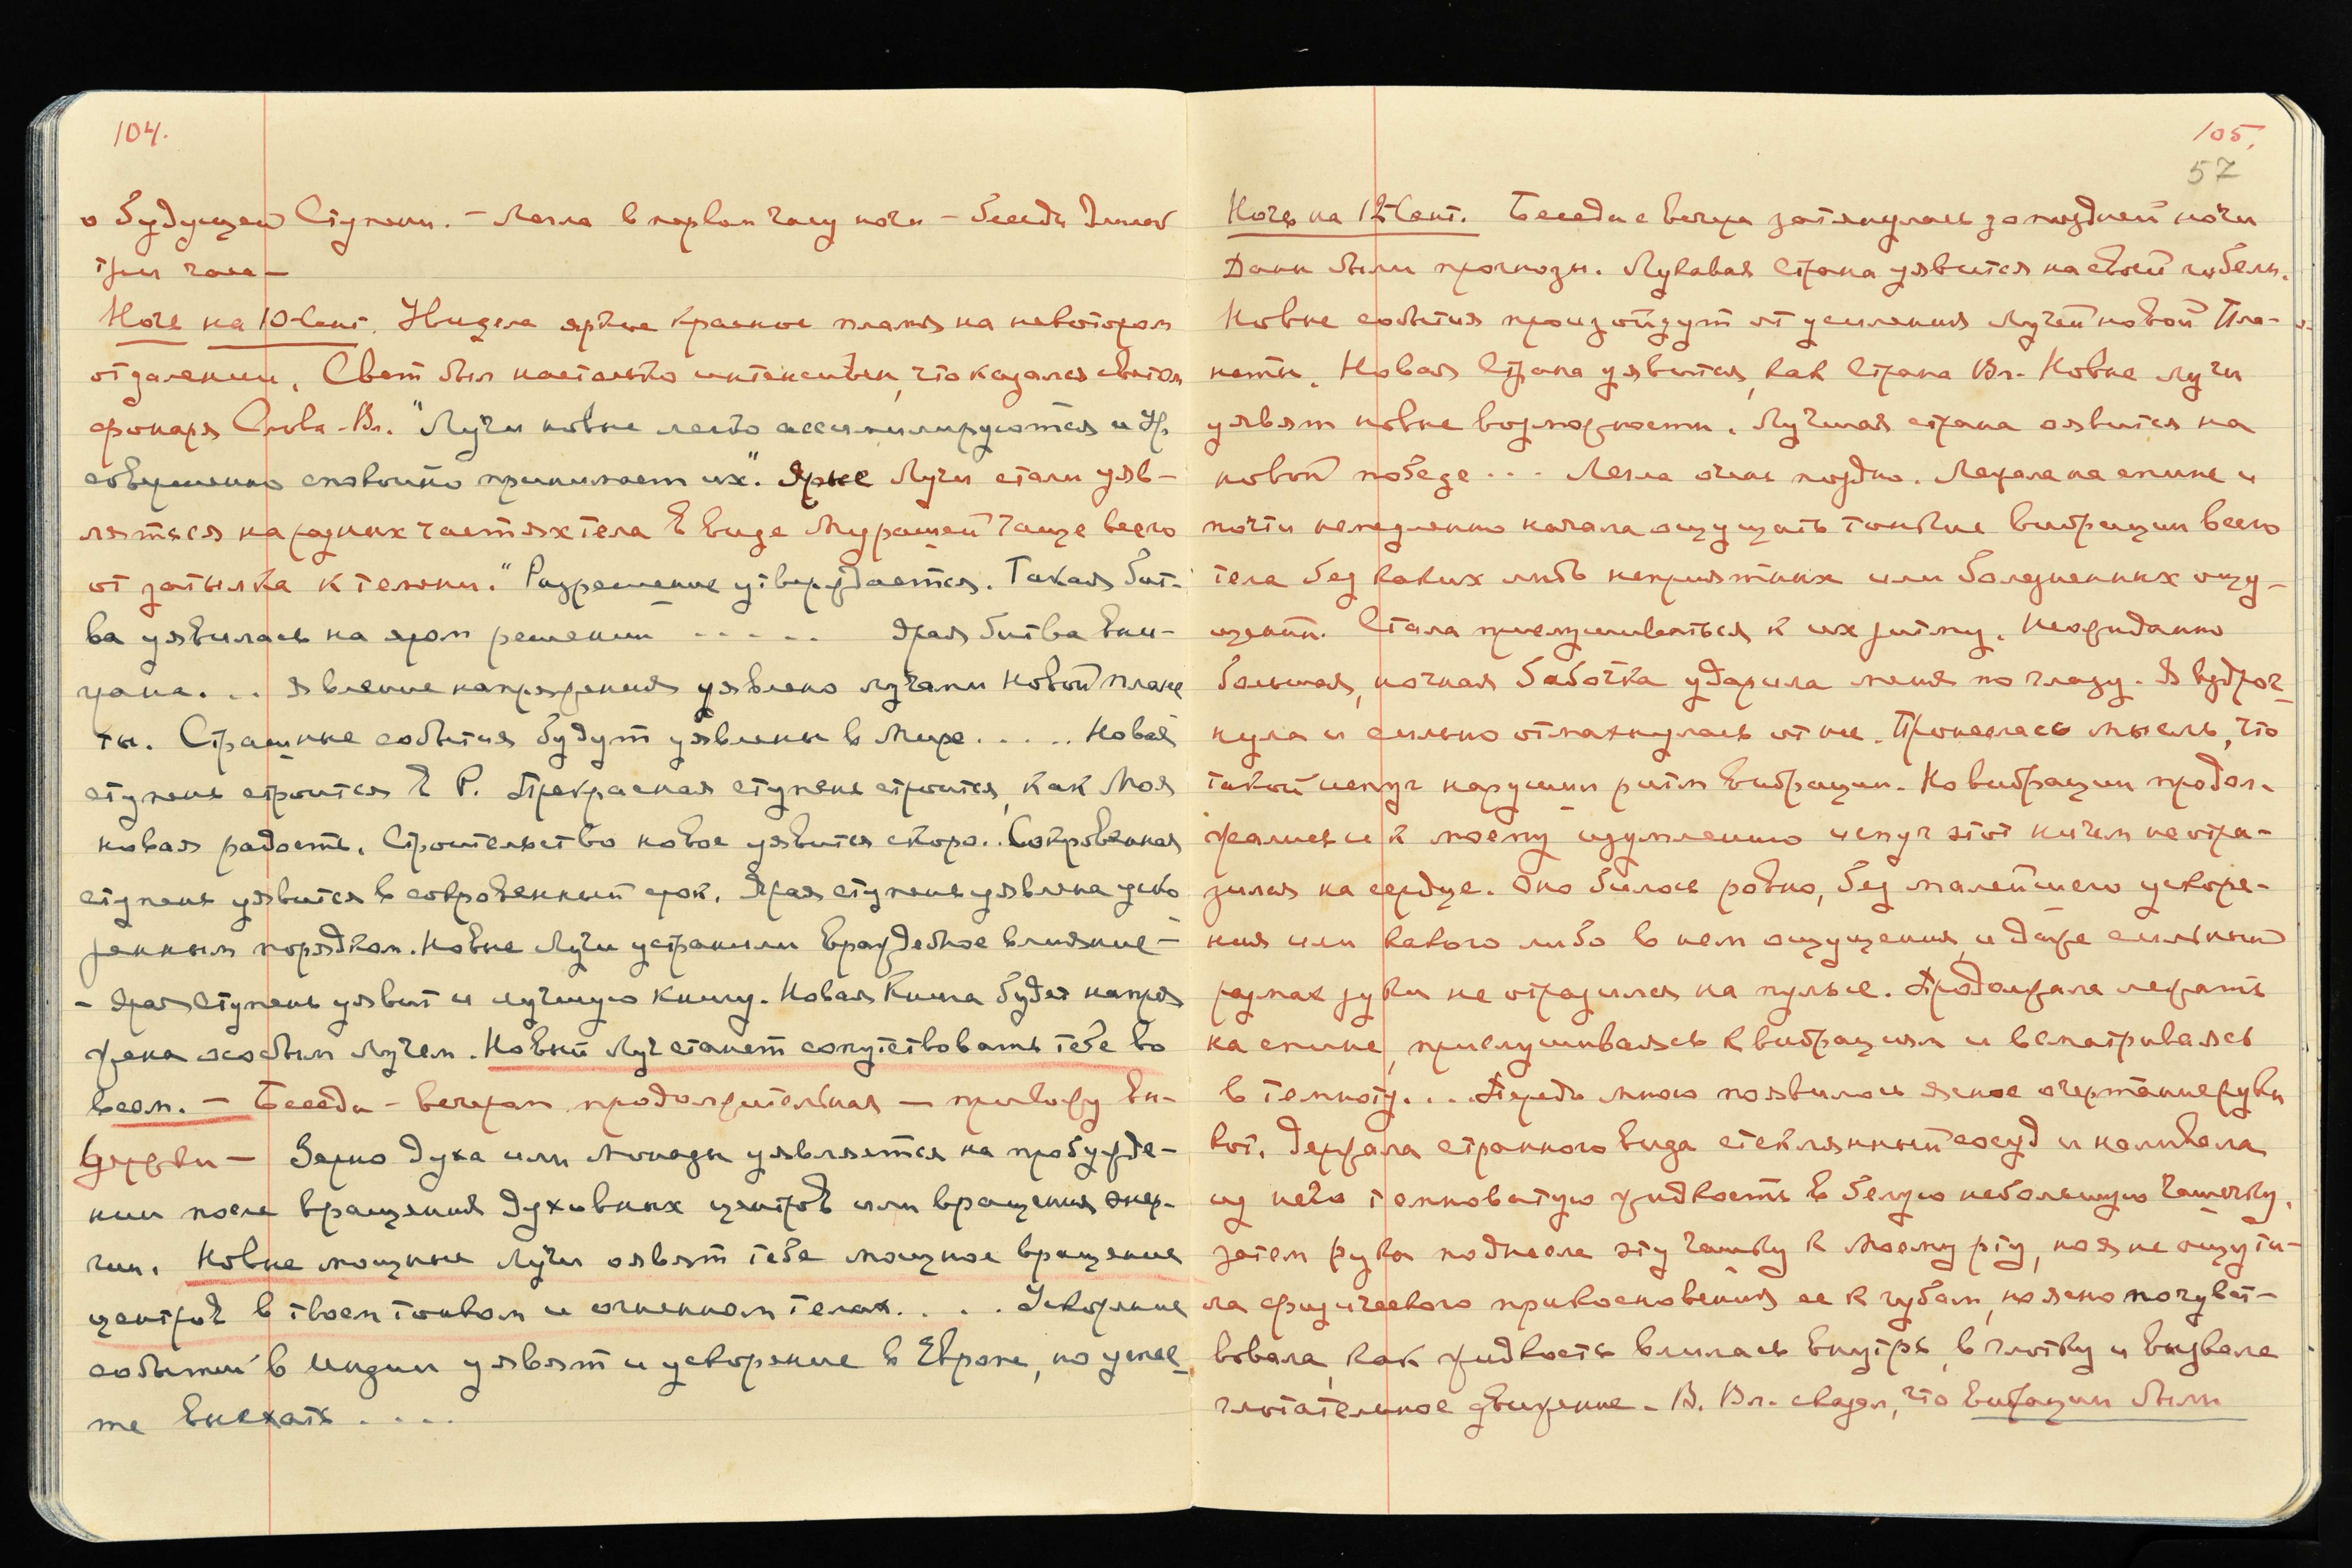 104.
о будущей Ступени. – Легла в первом часу ночи – беседа длилась
три часа –
Ночь на 10-Сент. Увидела яркое красное пламя на некотором
отдалении. Свет был настолько интенсивен, что казался светом
фонаря Слова – Вл. "Лучи новые легко ассимилируются и Ур.
совершенно спокойно принимает их". Ярые Лучи стали уяв-
ляться на разных частях тела в виде мурашей чаще всего
от затылка к темени. "Разрешение утверждается. Такая бит-
ва уявилась на яром решении ..... Ярая битва выи-
грана... Явление напряжения уявлено лучами новой плане
ты. Страшные события будут уявлены в Мире..... Новая
ступень строится в Р. Прекрасная ступень строится, как Моя
новая радость. Строительство новое уявится скоро.. Сокровенная
ступень уявится в сокровенный срок. Ярая ступень уявлена уско
ренным порядком. Новые Лучи устранили враждебное влияние –
– Ярая Ступень уявит и лучшую книгу. Новая Книга будет напря
жена особым Лучем. Новый Луч станет сопутствовать тебе во
всем. – Беседа – вечером продолжительная – привожу вы-
держки – Зерно духа или Монады уявляется на пробужде-
нии после вращения духовных центров или вращения энер-
гии. Новые мощные Лучи оявят тебе мощное вращение
центров в твоем тонком и огненном телах.... Ускорение
событий в Индии уявят и ускорение в Европе, но успее
те выехать ....
105.
57
Ночь на 12-Сент. Беседа с вечера затянулась до поздней ночи
Даны были прогнозы. Лукавая Страна уявится на своей гибели.
Новые события произойдут от усиления лучей новой Пла-
неты. Новая Страна уявится, как Страна Вл. Новые лучи
уявят новые возможности. Лучшая страна оявится на
новой победе... Легла очень поздно. Лежала на спине и
почти немедленно начала ощущать тонкие вибрации всего
тела без каких либо неприятных или болезненных ощу-
щений. Стала прислушиваться к их ритму. Неожиданно
большая, ночная бабочка ударила меня по глазу. Я вздрог-
нула и сильно отмахнулась от нее. Пронеслась мысль, что
такой испуг нарушил ритм вибрации. Но вибрации продол-
жались и к моему изумлению испуг этот ничем не отра-
зился на сердце. Оно билось ровно, без малейшего ускоре-
ния или какого либо в нем ощущения, и даже сильный
размах руки не отразился на пульсе. Продолжала лежать
на спине, прислушиваясь к вибрациям и всматриваясь
в темноту... Передо мною появилось ясное очертание руки
кот. держала странного вида стеклянный сосуд и наливала
из него темноватую жидкость в белую небольшую чашечку,
затем рука поднесла эту чашку к моему рту, но я не ощути-
ла физического прикосновения ее к губам, но ясно почувст-
вовала, как жидкость влилась внутрь, в глотку и вызвала
глотательное движение – В. Вл. сказал, что вибрации были